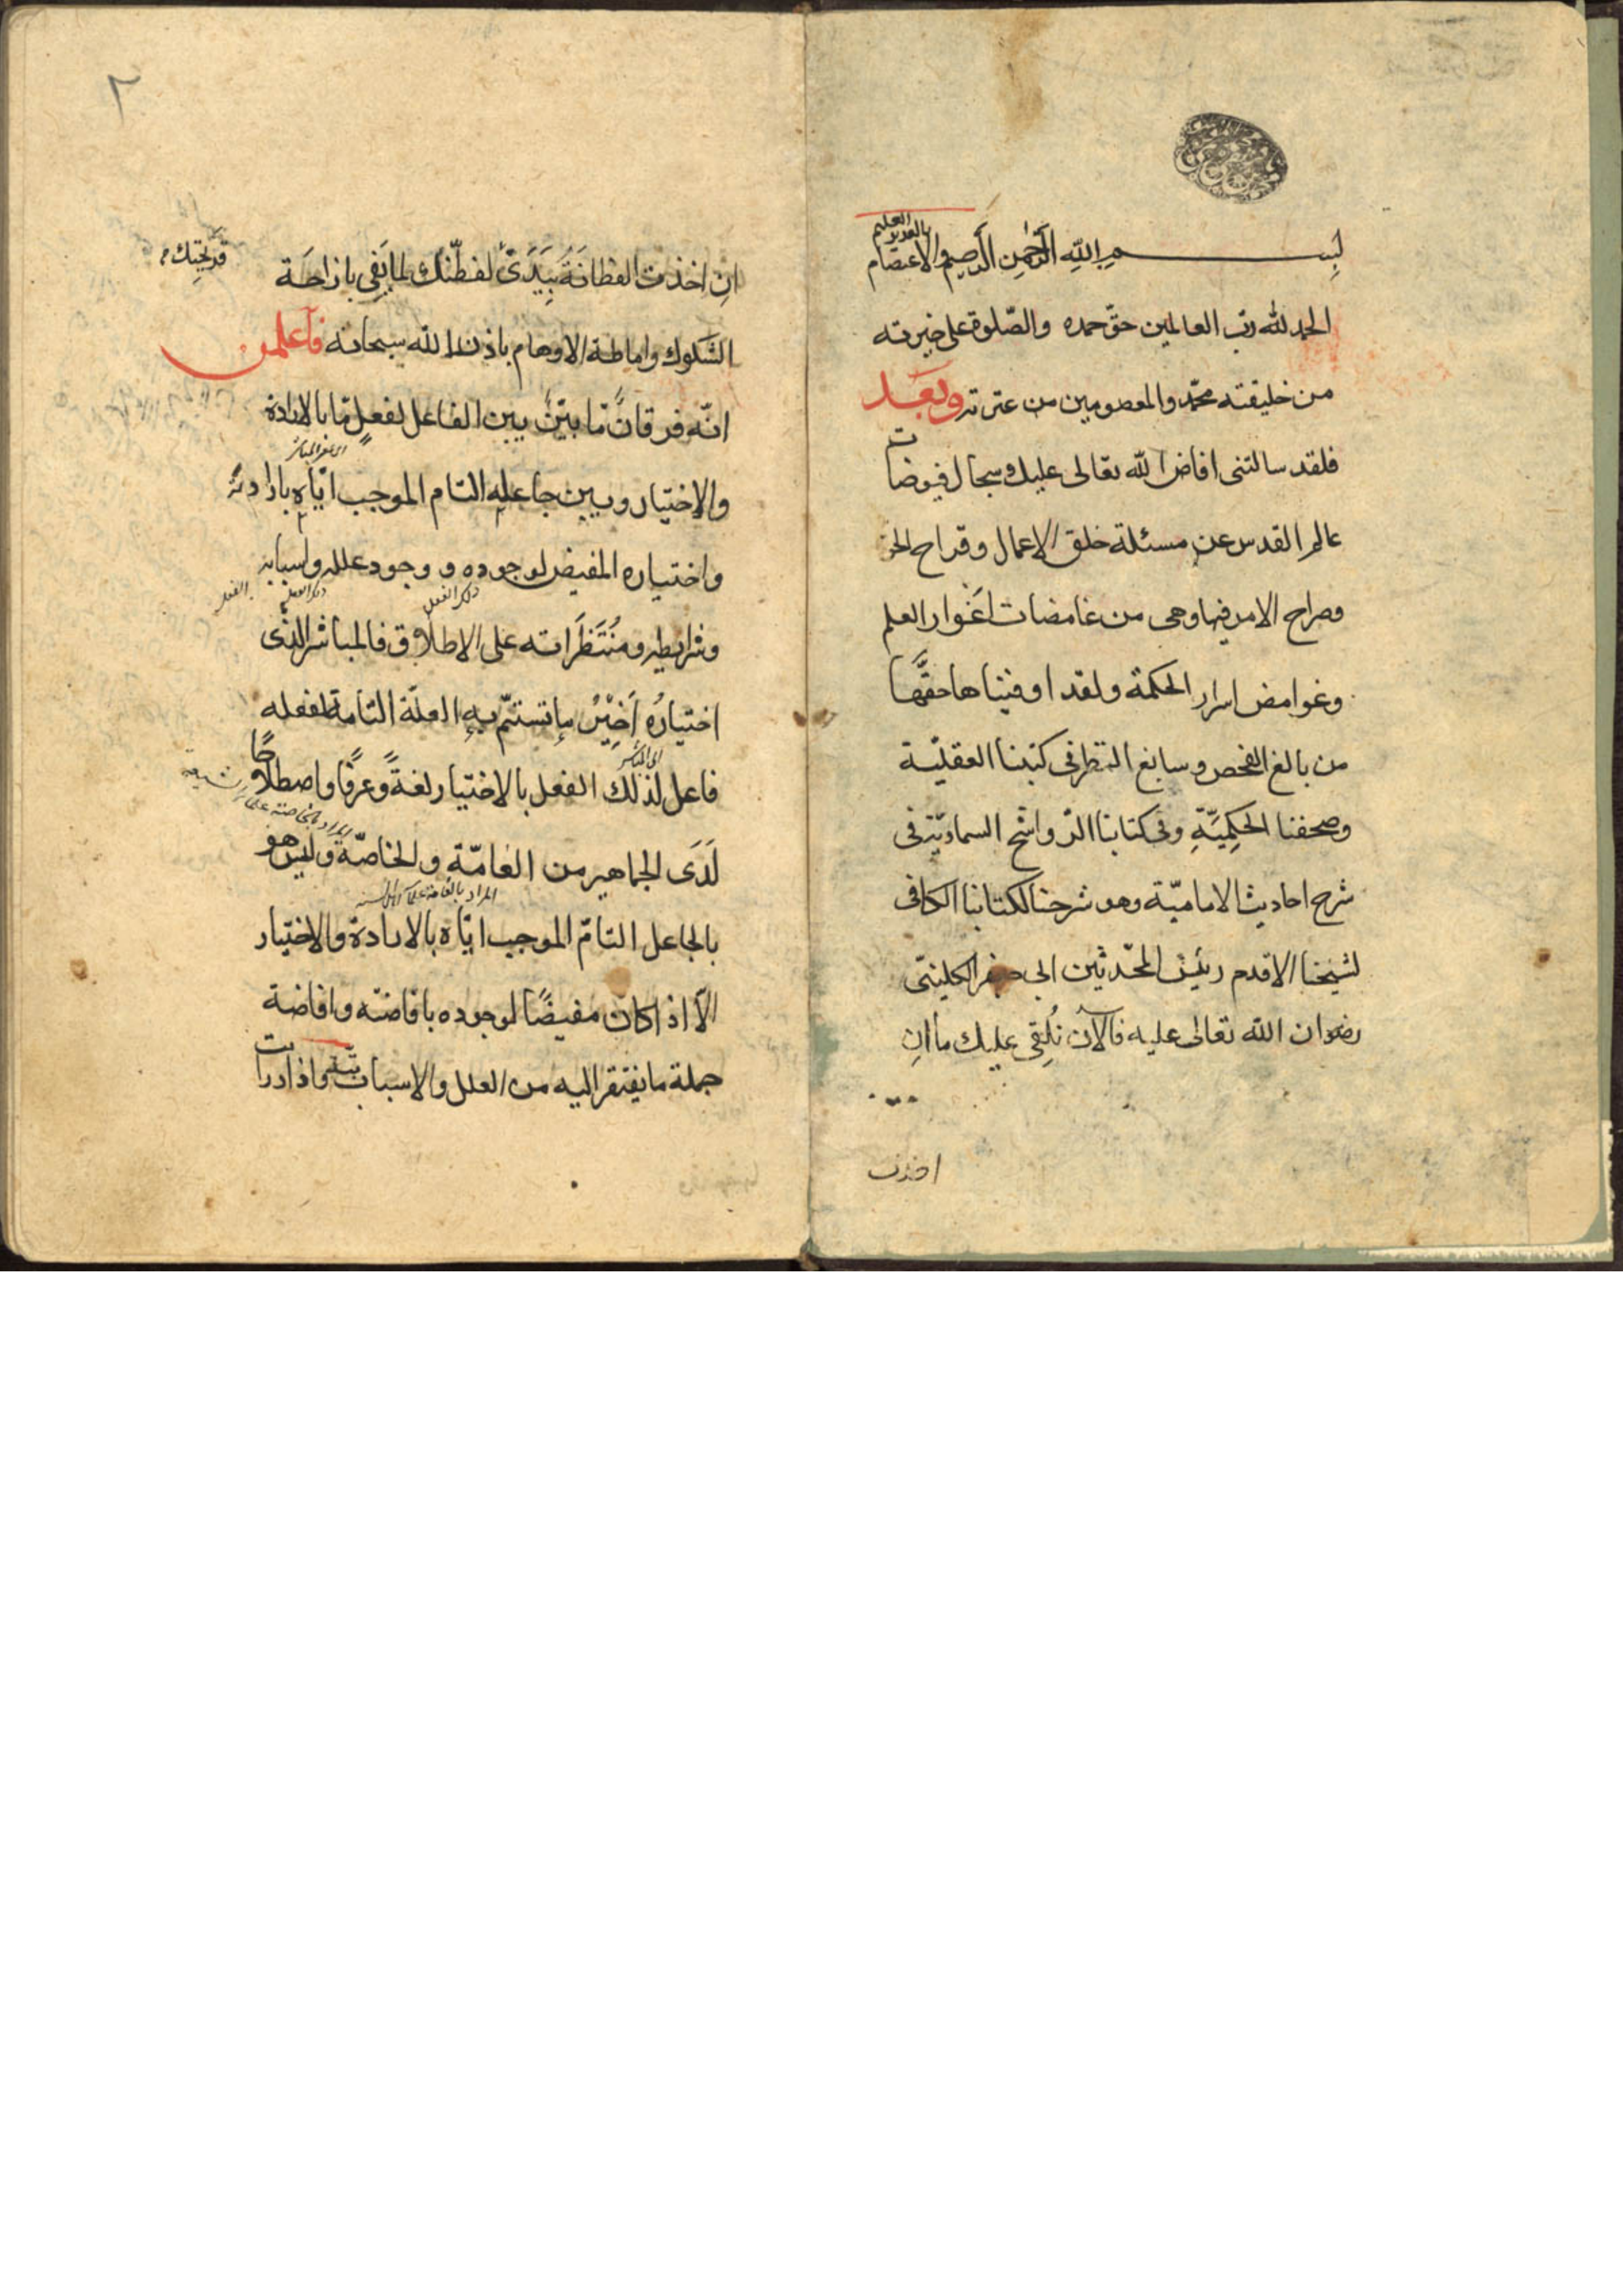 بسم الله الرحمن الرحيم والاعتصام
بالعزيز العليم
الحمد لله رب العالمين حق حمده والصلوة على خيرته
من خليقته محمد والمعصومين من عترته وبعد
فلقد سالتنى افاض الله تعالى عليك سجال فيوضات
عالم القدس عن مسئلة خلق الاعمال وقراح الحق
وصراح الامر فيها وهى من غامضات اغوار العلم
وغوامض اسرار الحكمة ولقد اوفيناها حقَّها
من بالغ الفحص وسابغ النظر فى كتبنا العقليّة
وصحفنا الحِكمِيَّةِ وفى كتابنا الرّواشح السماويّة فى
شرح احاديث الاماميّة وهو شرحنا لكتاب الكافى
لشيخنا الاقدم رئيس المحدّثين ابى جعفر الكلينىّ
رضوان الله تعالى عليه فالآن نُلقِى عليك ما اِنِ
اخذت
٢
اِنِ اخذت الفطانَةُ بِيَدَىْ تفطّنك لما يَفِى بازاحَة
قريحتِك
الشكوك واماطة الاوهام باذن الله سبحانه فاعلمن
انّه فرقانٌ مّا بيّنٌ بين الفاعل لفعلٍ مّا بالارادة
والاختيار وبين جاعله التام الموجب ايّاه بارادته
واختياره المفيض لوجوده و وجود علله واسبابه
ذلك الفعل
وشرايطه ومُنتَظَراته على الاطلاق فالمباشر الذى
اختيارُه اَخِيْرُ ما تستتمّ به العلّة التامة لفعله
فاعل لذلك الفعل بالاختيار لغةً وعرفًا واصطلاحًا
لَدَى الجماهير من العامّة والخاصّة وليس هو
المراد بالعامة علماء اهل السنة
بالجاعل التامّ الموجب ايّاه بالارادة والاختيار
الّا اذا كان مفيضًا لوجوده بافاضته وافاضة
جملة ما يفتقر اليه من العلل والاسباب واذا دريت